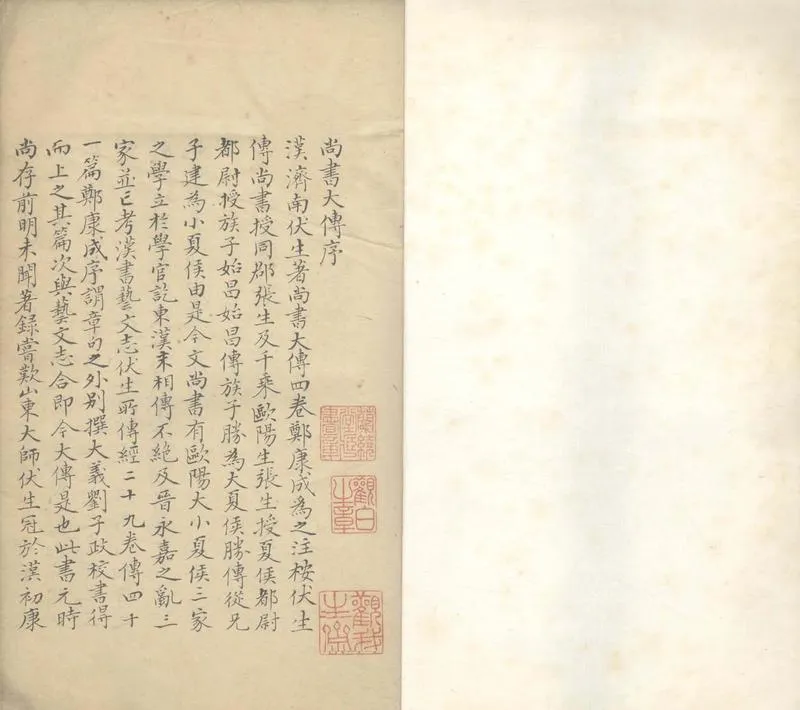 尚書大傳序
漢濟南伏生著尚書大傳四卷鄭康成為之注桉伏生
傳尚書授同郡張生及千乘歐陽生張生授夏侯都尉
都尉授族子始昌始昌傳族子勝為大夏侯勝傳從兄
子建為小夏侯由是今文尚書有歐陽大小夏侯三家
之學立於學官訖東漢末相傳不絕及晉永嘉之亂三
家並亡考漢書藝文志伏生所傳經二十九卷傳四十
一篇鄭康成序謂章句之外別撰大義劉子政校書得
而上之其篇次與藝文志合即今大傳是也此書元時
尚存前明未聞著錄嘗歎山東大師伏生冠於漢初康
觀白
之章